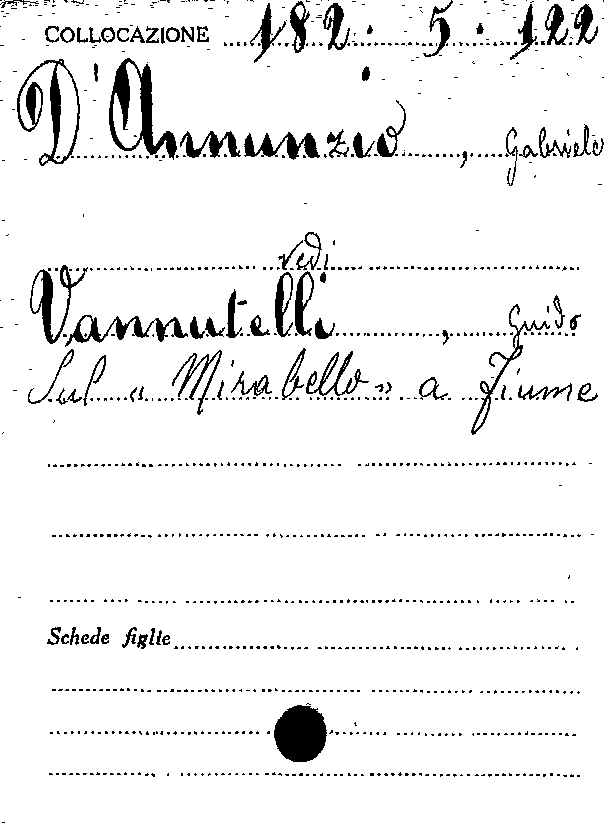 COLLOCAZIONE 182. 5. 122
D'Annunzio, Gabriele
vedi
Vannutelli, Guido
Sul « Mirabello » a Fiume
Schede figlie